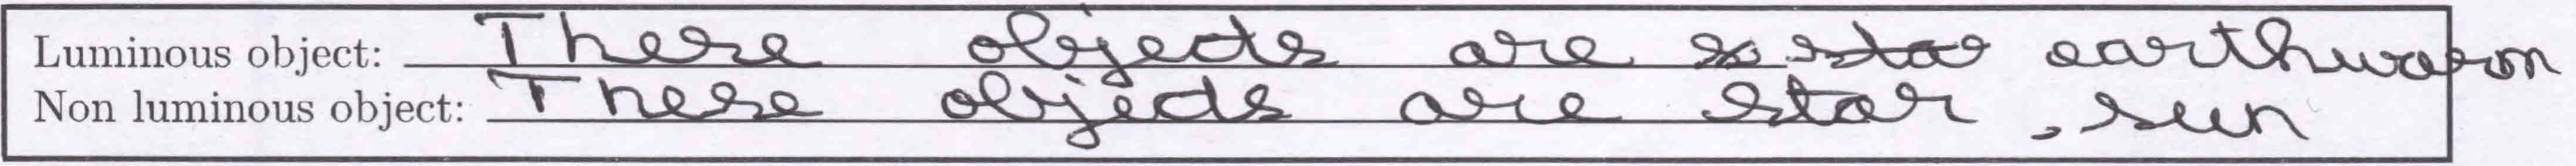 Luminous object: There objects are earthworm
Non luminous object: These objects are star, sun